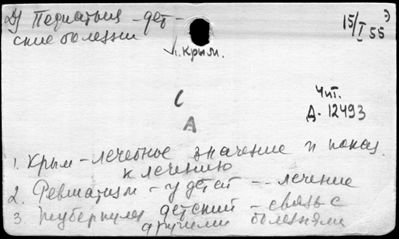 2) Педиатрия - дет-
ские болезни
15/I 55
л. Крым.
С
А
Чит.
Д. 12493
1. Крым - лечебное значение и показ.
к лечению
2. Ревматизм - у детей -- лечение
3 Туберкулез детский - связь с
другими болезнями